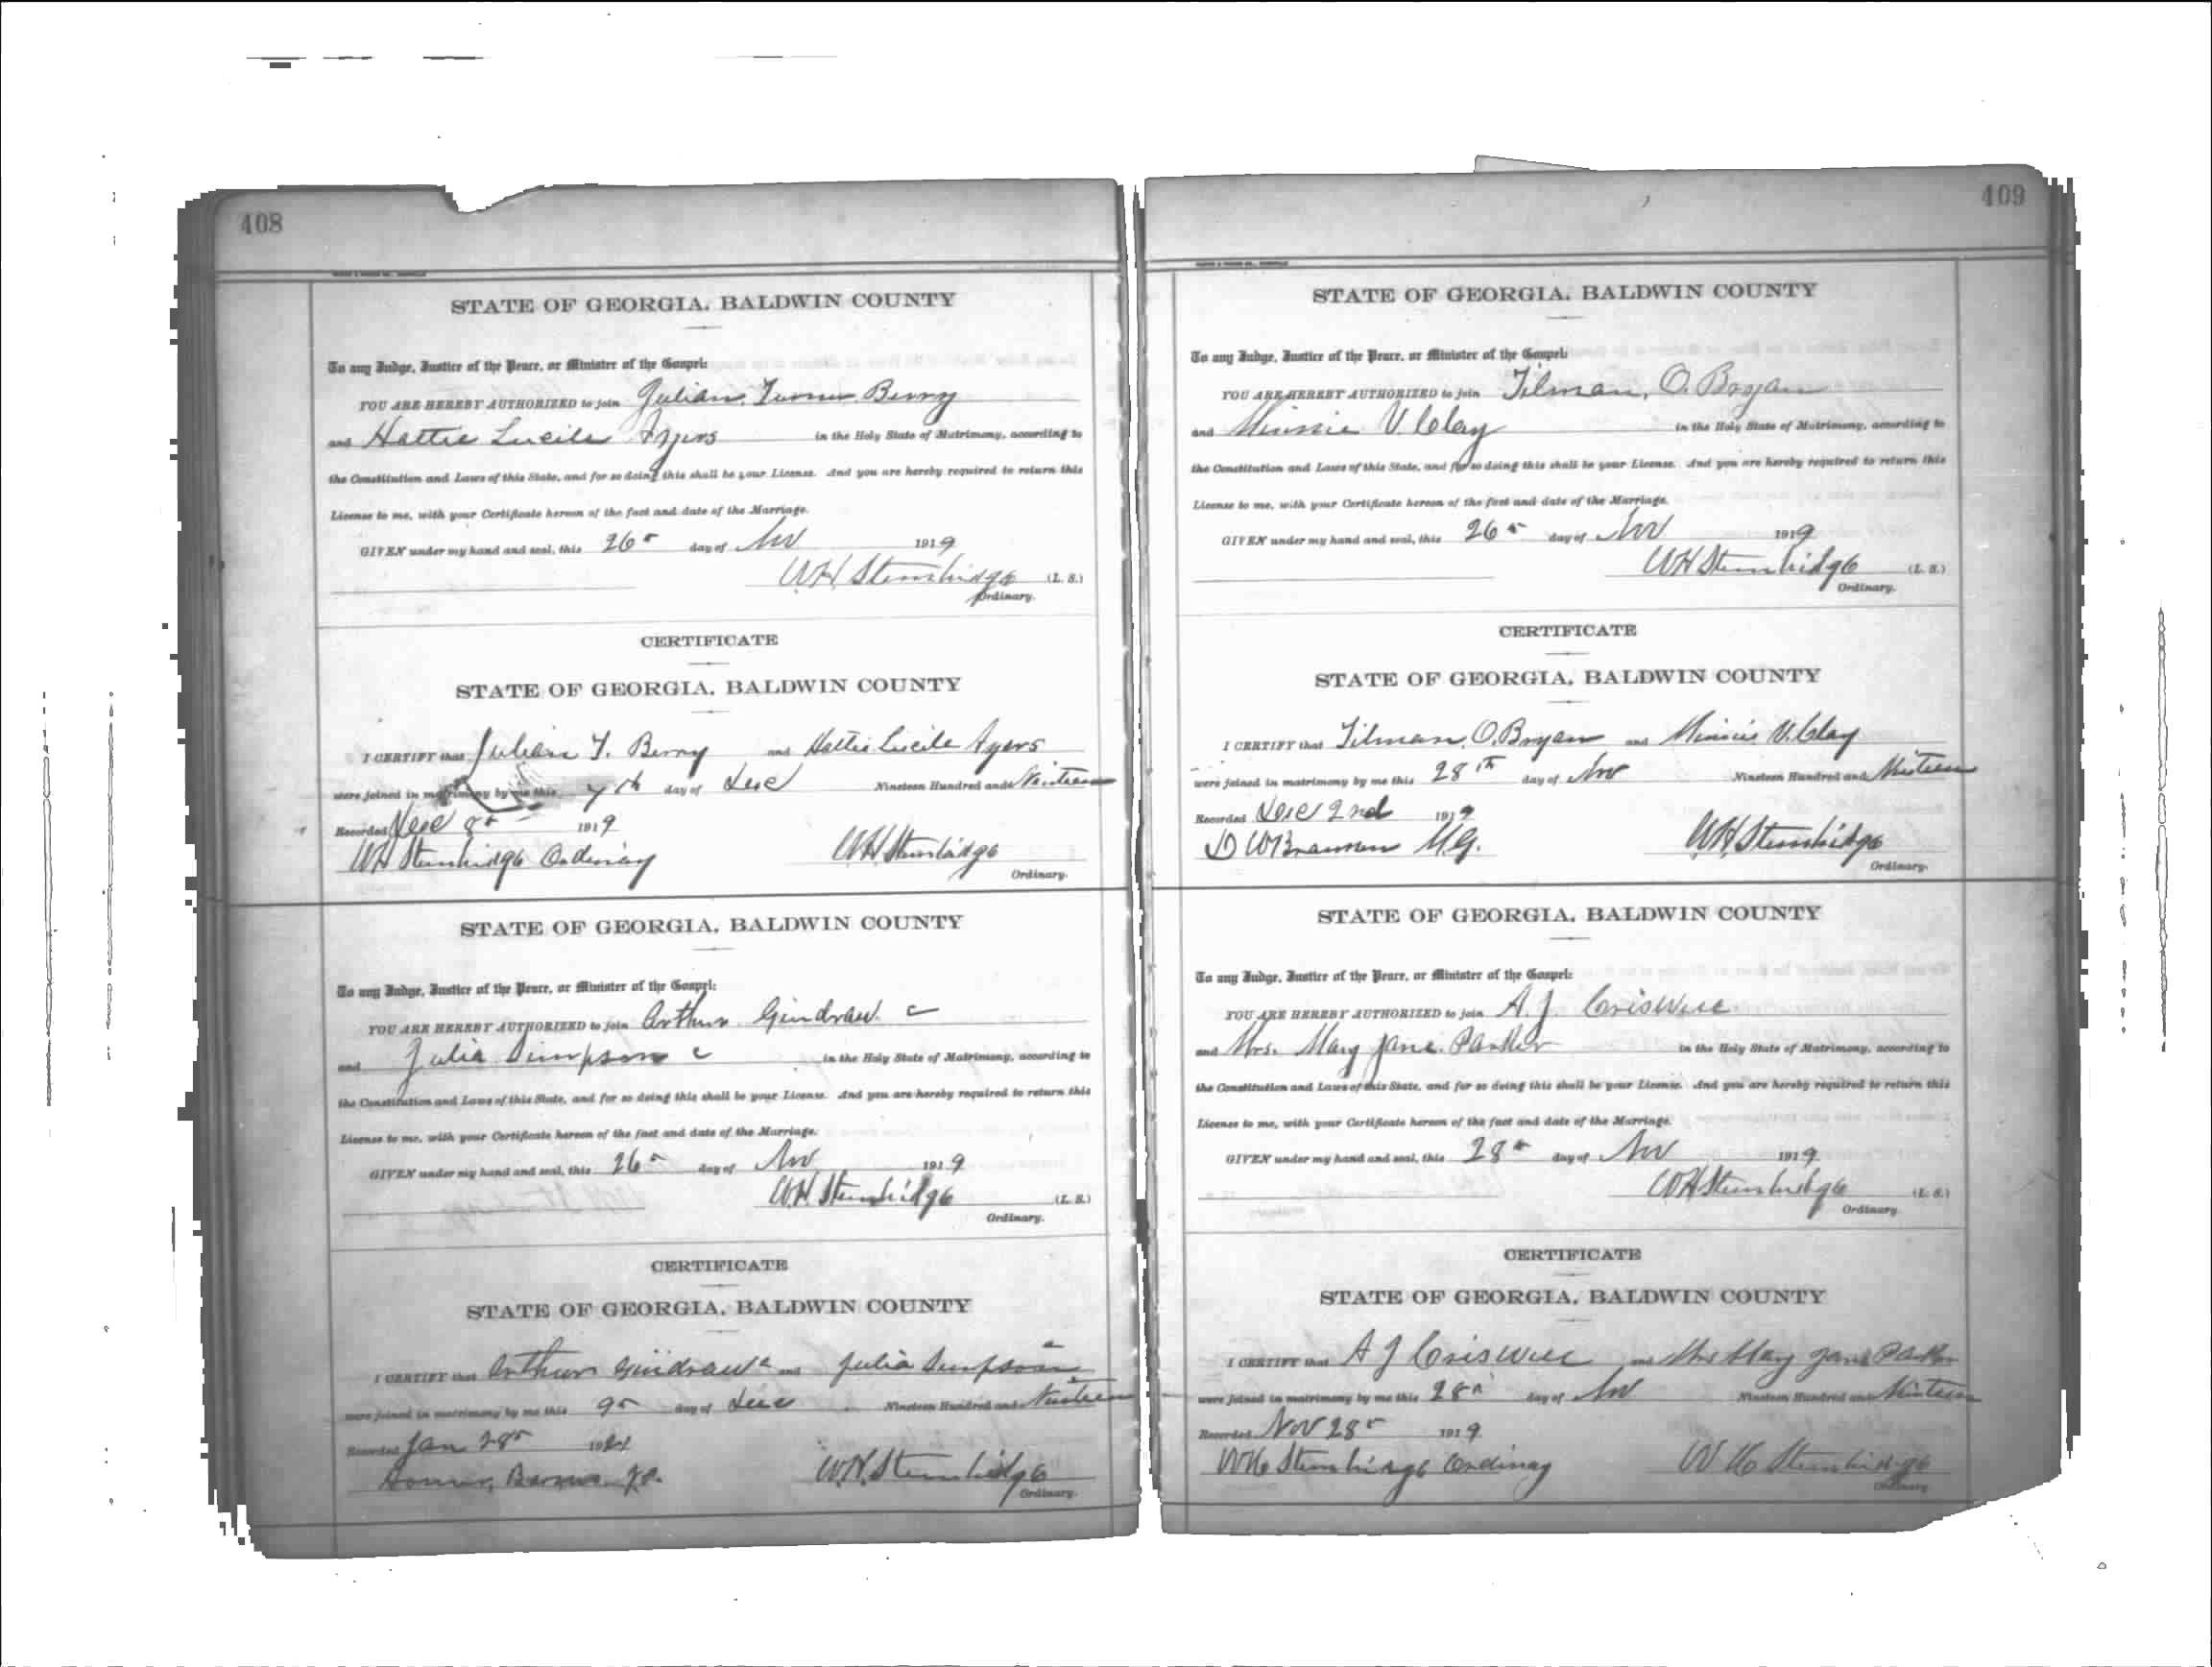 408
STATE OF GEORGIA, BALDWIN COUNTY
To any Judge, Justice of the Peace, or Minister of the Gospel:
YOU ARE HEREBY AUTHORIZED to join Julian Turner Berry
and Hattie Lucile Ayers in the Holy State of Matrimony, according to
the Constitution and Laws of this State, and for so doing this shall be your License. And you are hereby required to return this
License to me, with your Certificate hereon of the fact and date of the Marriage.
GIVEN under my hand and seal, this 26 day of Nov 1919
WH Stembridge (L. S.)
Ordinary.
CERTIFICATE
STATE OF GEORGIA, BALDWIN COUNTY
I CERTIFY that Julian T. Berry and Hattie Lucile Ayers
were joined in matrimony by me this 7th day of Dec Nineteen Hundred and Nineteen
Recorded Dec 8 1919
WH Stembridge Ordinary WH Stembridge
Ordinary.
STATE OF GEORGIA, BALDWIN COUNTY
To any Judge, Justice of the Peace, or Minister of the Gospel:
YOU ARE HEREBY AUTHORIZED to join Arthur Gindraw c
and Julia Simpson c in the Holy State of Matrimony, according to
the Constitution and Laws of this State, and for so doing this shall be your License. And you are hereby required to return this
License to me, with your Certificate hereon of the fact and date of the Marriage.
GIVEN under my hand and seal, this 26 day of Nov 1919
W.H. Stembridge (L. S.)
Ordinary.
CERTIFICATE
STATE OF GEORGIA, BALDWIN COUNTY
I CERTIFY that Arthur Gindraw c and Julia Simpson c
were joined in matrimony by me this 9 day of Dec Nineteen Hundred and Nineteen
Recorded Jan 28
Barnes J.P. W.H. Stembridge
Ordinary.
409
STATE OF GEORGIA, BALDWIN COUNTY
To any Judge, Justice of the Peace, or Minister of the Gospel:
YOU ARE HEREBY AUTHORIZED to join Tilman, O. Bryan
and Minnie V. Clay in the Holy State of Matrimony, according to
the Constitution and Laws of this State, and for so doing this shall be your License. And you are hereby required to return this
License to me, with your Certificate hereon of the fact and date of the Marriage.
GIVEN under my hand and seal, this 26 day of Nov 1919
WH Stembridge (L. S.)
Ordinary.
CERTIFICATE
STATE OF GEORGIA, BALDWIN COUNTY
I CERTIFY that Tilman, O. Bryan and Minnie V. Clay
were joined in matrimony by me this 28th day of Nov Nineteen Hundred and Nineteen
Recorded Dec 2nd 1919
D W Brannen M.G. W.H. Stembridge
Ordinary.
STATE OF GEORGIA, BALDWIN COUNTY
To any Judge, Justice of the Peace, or Minister of the Gospel:
YOU ARE HEREBY AUTHORIZED to join A. J. Criswell
and Mrs. Mary Jane Parker in the Holy State of Matrimony, according to
the Constitution and Laws of this State, and for so doing this shall be your License. And you are hereby required to return this
License to me, with your Certificate hereon of the fact and date of the Marriage.
GIVEN under my hand and seal, this 28 day of Nov 1919
WH Stembridge (L. S.)
Ordinary.
CERTIFICATE
STATE OF GEORGIA, BALDWIN COUNTY
I CERTIFY that A J Criswell and Mrs Mary Jane Parker
were joined in matrimony by me this 28 day of Nov Nineteen Hundred and Nineteen
Recorded Nov 28 1919
WH Stembridge Ordinary W H Stembridge
Ordinary